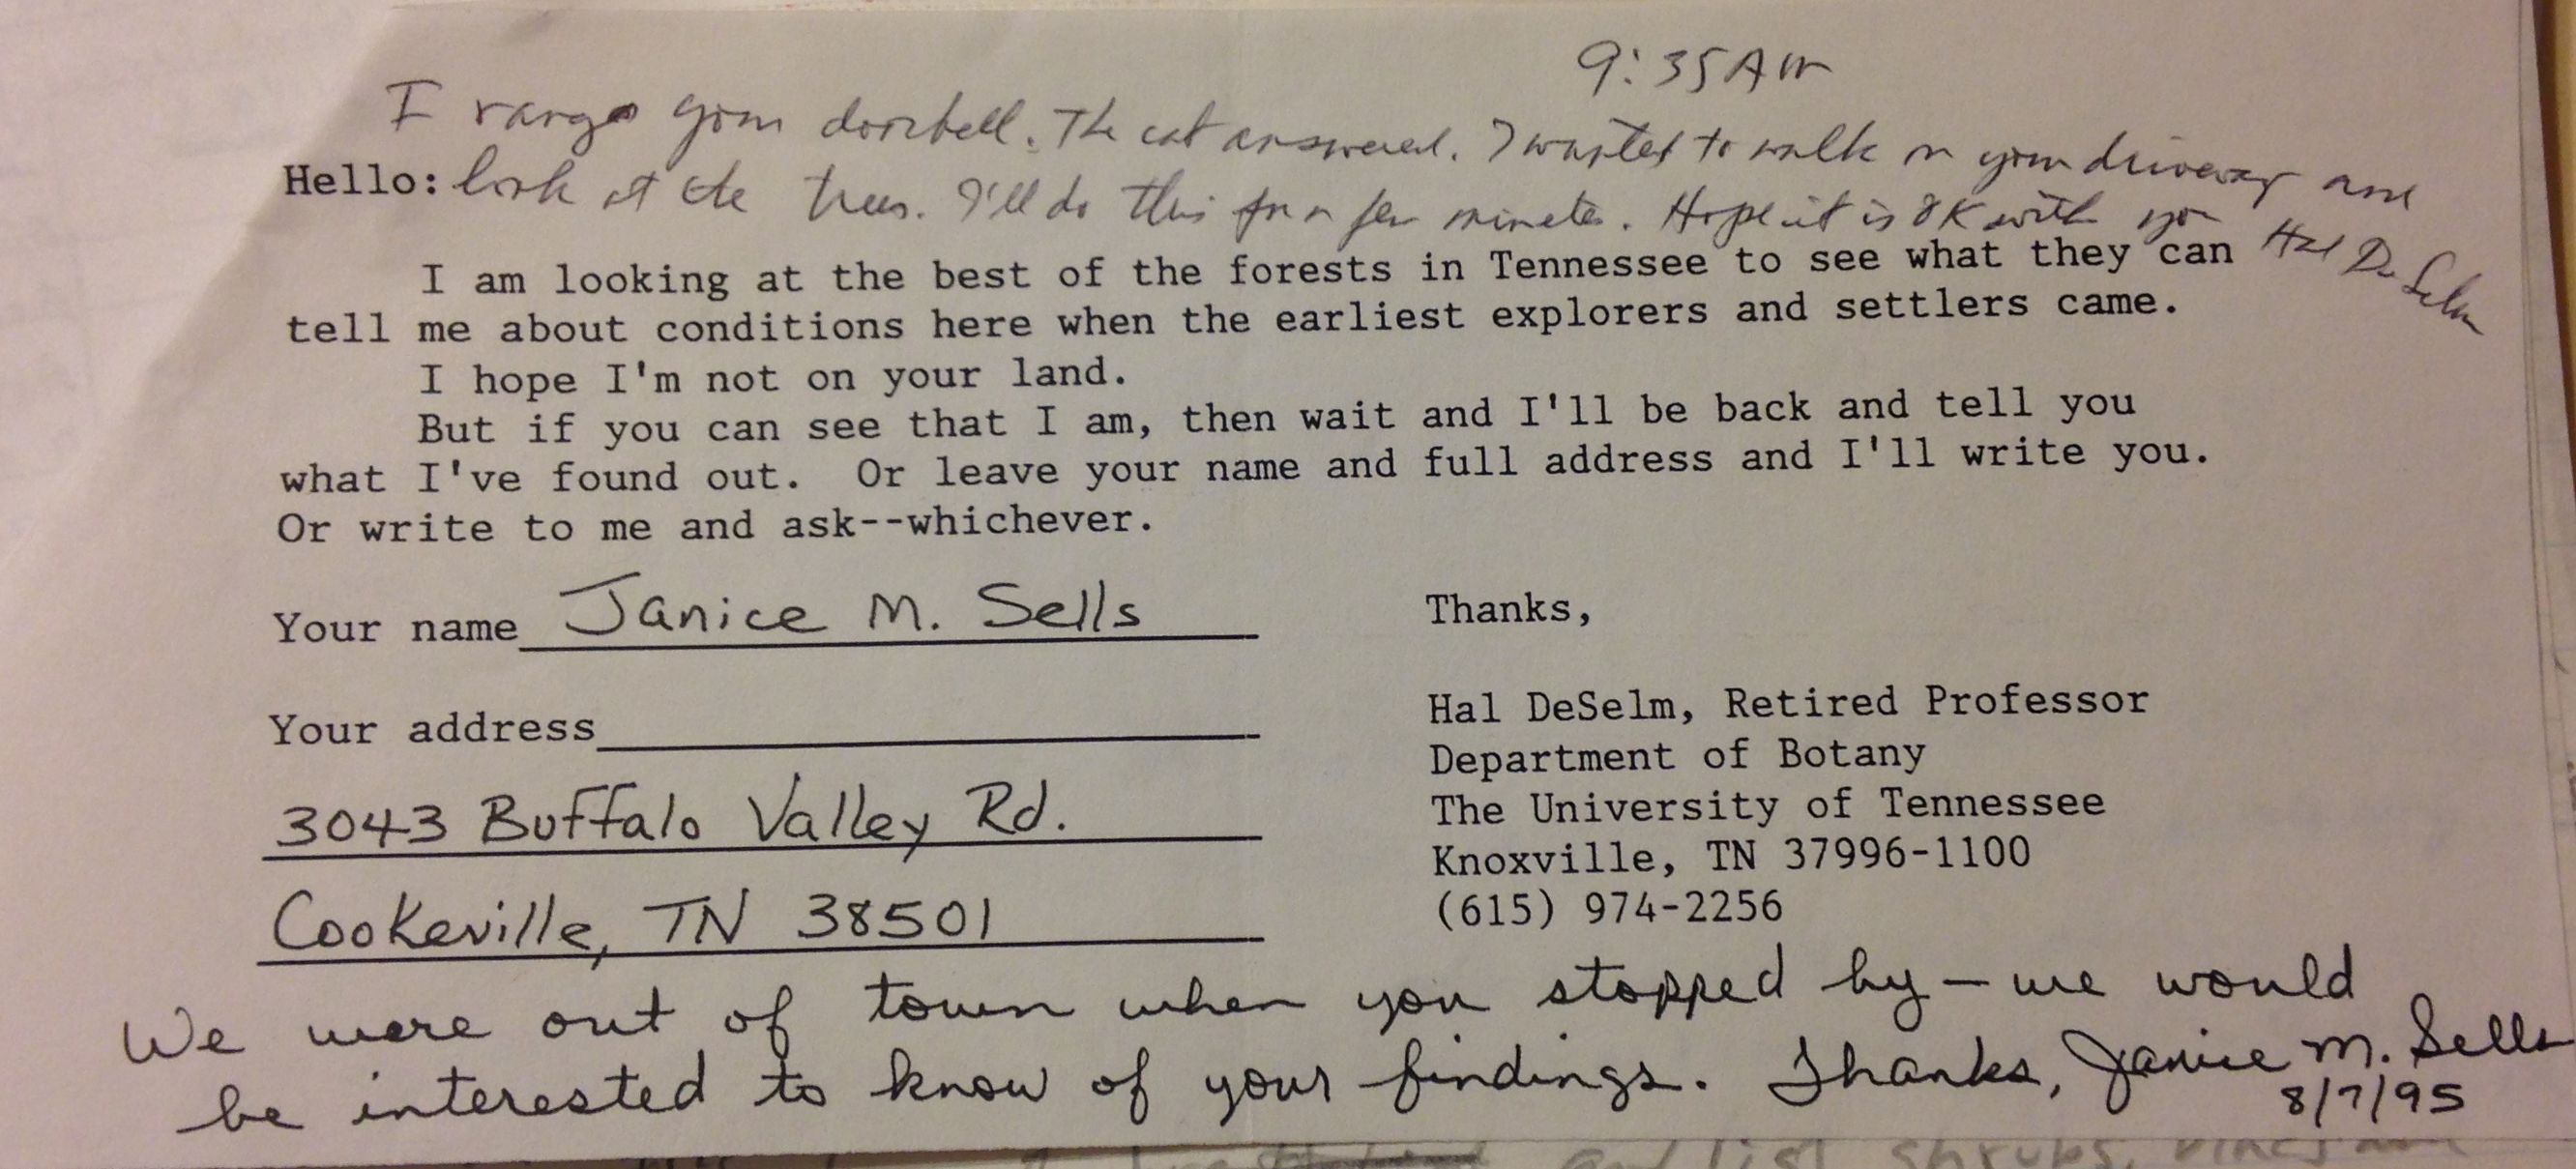 9:35 AM
I rang your doorbell. The cat answered. I wanted to walk on your driveway and
Hello: look at the trees. I'll do this for a few minutes. Hope it is OK with you Hal DeSelm
I am looking at the best of the forests in Tennessee to see what they can
tell me about conditions here when the earliest explorers and settlers came.
I hope I'm not on your land.
But if you can see that I am, then wait and I'll be back and tell you
what I've found out. Or leave your name and full address and I'll write you.
Or write to me and ask--whichever.
Your name Janice M. Sells
Your address
3043 Buffalo Valley Rd.
Cookeville, TN 38501
Thanks,
Hal DeSelm, Retired Professor
Department of Botany
The University of Tennessee
Knoxville, TN 37996-1100
(615) 974-2256
We were out of town when you stopped by - we would
be interested to know of your findings. Thanks, Janice M. Sells
8/7/95
list shrubs,